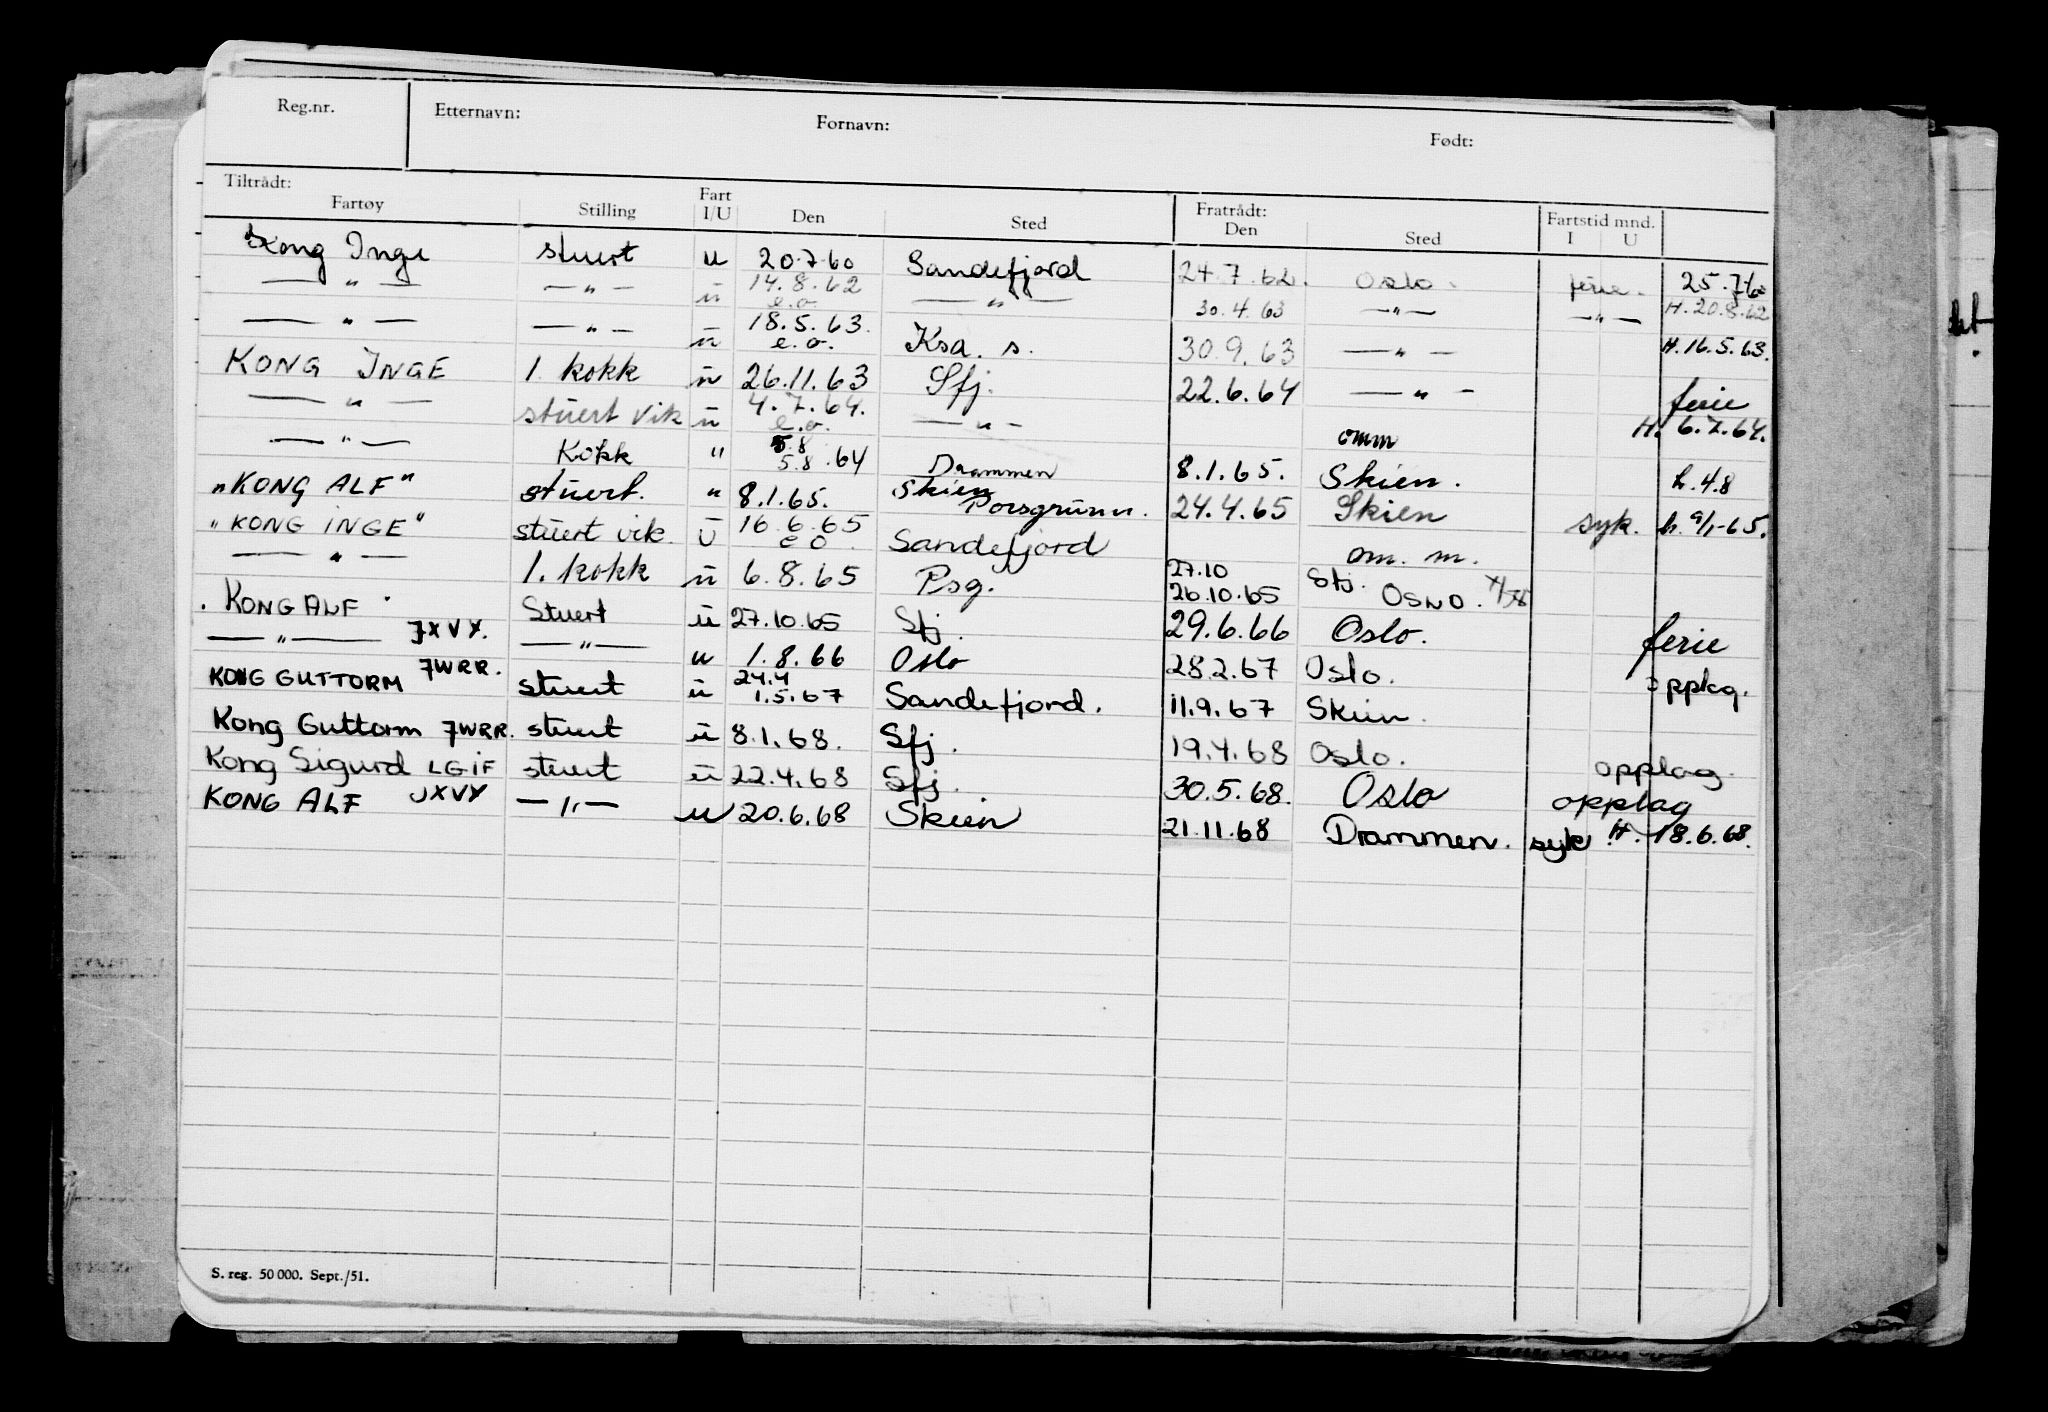 Reg.nr. Etternavn: Fornavn: Født:
Tiltrådt: Fartøy Stilling Fart I/U Den Sted Fratrådt: Den Sted Fartstid mnd. I U
Kong Inge stuert u 20.7.60 Sandefjord 24.7.62. Oslo. ferie. 25.7.60
— " — — " — u 14.8.62 e.o. — " — 30.4.63 — " — — " — H. 20.8.62
— " — — " — u 18.5.63. e.o. Ksa. s. 30.9.63 — " — H. 16.5.63.
KONG INGE 1. kokk u 26.11.63 Sfj. 22.6.64 — " — ferie
— " — stuert vik u 4.7.64. e.o. — " — omm H. 6.7.64.
— " — Kokk " 5.8 5.8.64 Drammen 8.1.65. Skien. h. 4.8
"KONG ALF" stuert. " 8.1.65. Skien Porsgrunn. 24.4.65 Skien syk. h. 9/1-65.
"KONG INGE" stuert vik. U 16.6.65 e o. Sandefjord om. m.
— " — 1. kokk u 6.8.65 Psg. 27.10 26.10.65 Sfj. OSNO.
. KONG ALF . Stuert u 27.10.65 Sfj. 29.6.66 Oslo. ferie
— " — JXVY. — " — u 1.8.66 Oslo 28.2.67 Oslo. opplag.
KONG GUTTORM JWRR. stuert u 24.4 1.5.67 Sandefjord. 11.9.67 Skien.
Kong Guttorm JWRR. stuert u 8.1.68. Sfj. 19.4.68 Oslo. opplag.
Kong Sigurd LGIF stuert u 22.4.68 Sfj. 30.5.68. Oslo opplag
KONG ALF JXVY — " — u 20.6.68 Skien 21.11.68 Drammen. syk H. 18.6.68.
S. reg. 50 000. Sept./51.